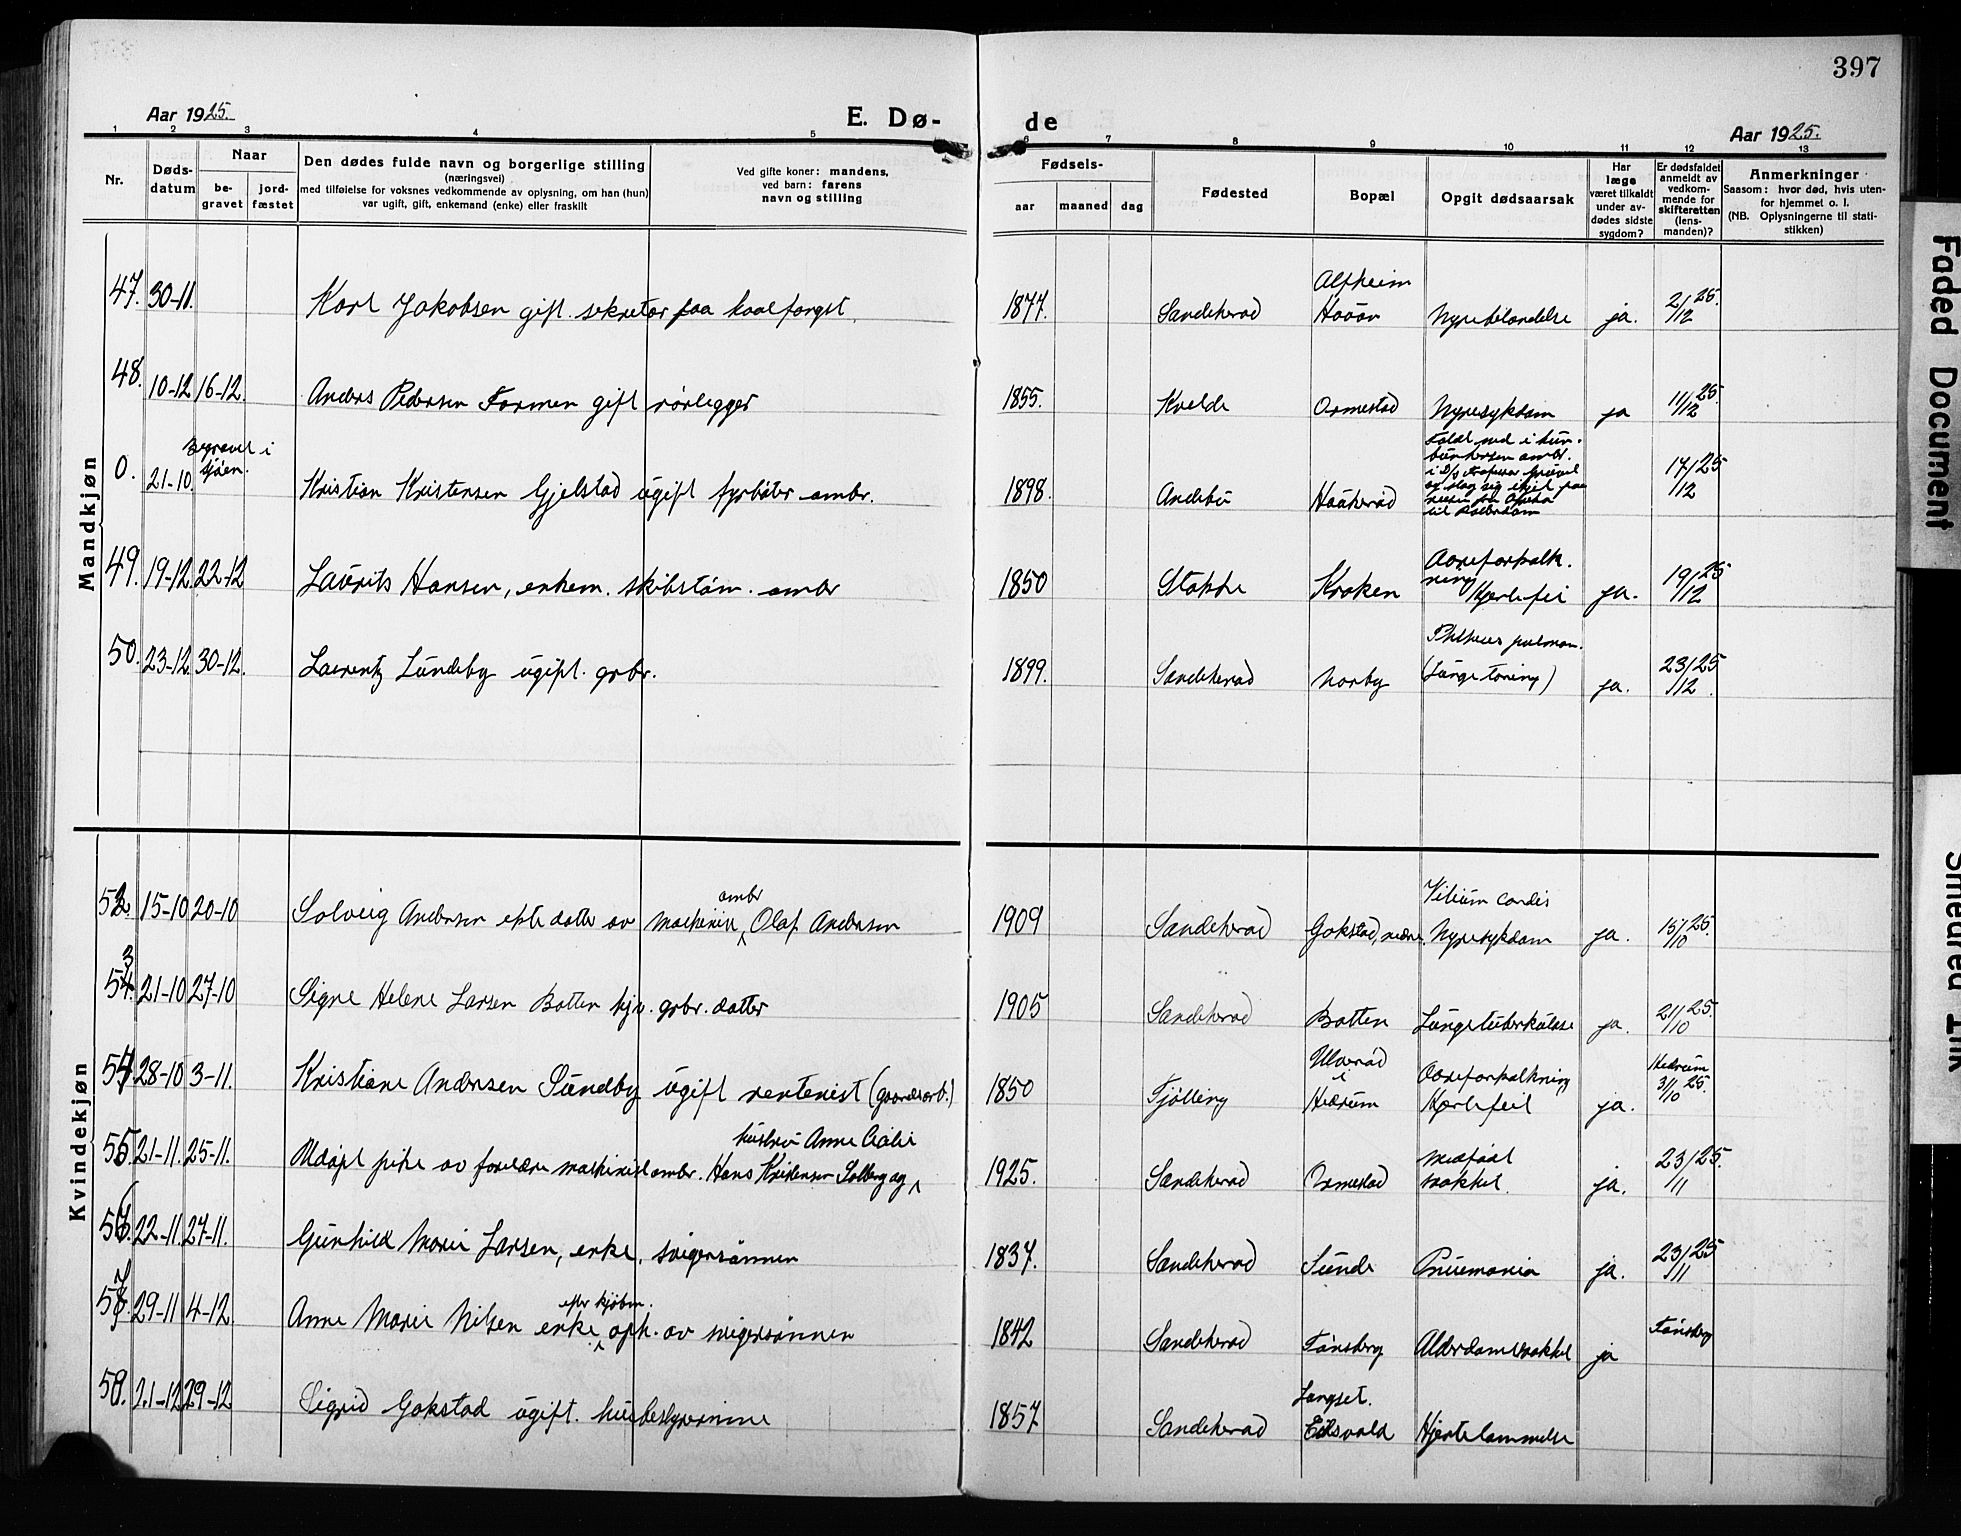 397
Aar 1925.
E. Dø-
de
Aar 1925.
1 2 3 4 5 6 7 8 9 10 11 12 13
Nr.
Døds-
datum
Naar
be-
gravet
jord-
fæstet
Den dødes fulde navn og borgerlige stilling
(næringsvei)
med tilføielse for voksnes vedkommende av oplysning, om han (hun)
var ugift, gift, enkemand (enke) eller fraskilt
Ved gifte koner: mandens,
ved barn: farens
navn og stilling
Fødsels-
aar maaned dag
Fødested
Bopæl
Opgit dødsaarsak
Har
læge
været tilkaldt
under av-
dødes sidste
sygdom?
Er dødsfaldet
anmeldt av
vedkom-
mende for
skifteretten
(lens-
manden)?
Anmerkninger
Saasom: hvor død, hvis uten-
for hjemmet o. l.
(NB. Oplysningerne til stati-
stikken)
Mandkjøn
47. 30-11. Karl Jakobsen gift. sekretær paa hvalfangst. 1877. Sandeherad Alfheim Haaan Nyrebetændelse ja. 2/12 25.
48. 10-12 16-12. Anders Pedersen Formen gift rørlegger 1855. Kvelde Ormestad Nyresykdom ja 11/12 25.
0. 21-10. begravet i sjøen. Kristian Kristensen Gjelstad ugift fyrbøter ombr. 1898. Andebu Haakerød Faldt ned i
til Rotterdam 17/12 25
49. 19-12 22-12 Laurits Hansen, enkem. skibstøm. ombr 1850 Stokke Kroken Aareforkalk-
ning Hjertefeil ja. 19/12 25
50. 23-12. 30-12. Laurentz Lundeby ugift. grbr. 1899. Sandeherad Norby Phthisis pulmon.
(Lungetæring) ja. 23/12 25.
Kvindekjøn
52 15-10 20-10 Solveig Andersen egte datter av maskinist ombr Olaf Andersen 1909 Sandeherad Gokstad, nedre. Vitium cordis
Nyresykdom ja. 15/10 25.
53. 21-10 27-10 Signe Helene Larsen Botten hjv. grbr. datter 1905 Sandeherad Botten Lungetuberkulose ja. 21/10 25.
54 28-10 3-11. Kristiane Andersen Sundby ugift rentenist (gaardsarb.) 1850 Tjølling i Hedrum Aareforkalkning
Hjertefeil ja. Hedrum 3/10 25.
55. 21-11. 25-11. Udøpt pike av forældre maskinist ombr. Hans Kristensen Solberg og hustru Anne Cecilie 1925. Sandeherad Ormestad Medfødt
svakhet. ja. 23/11 25.
56. 22-11. 27-11. Gunhild Marie Larsen, enke, svigersønnen 1837. Sandeherad Sunde Pneumonia ja. 23/11 25
57. 29-11 4-12. Anne Marie Nilsen enke efter kjøbm. oph. av svigersønnen 1842 Sandeherad Tønsberg Alderdomssvakhet ja Tønsberg
58. 21-12 29-12 Sigrid Gokstad ugift. husbestyrerinne 1857 Sandeherad Langset.
Eidsvold Hjertelammelse
Faded Document
Smeared Ink